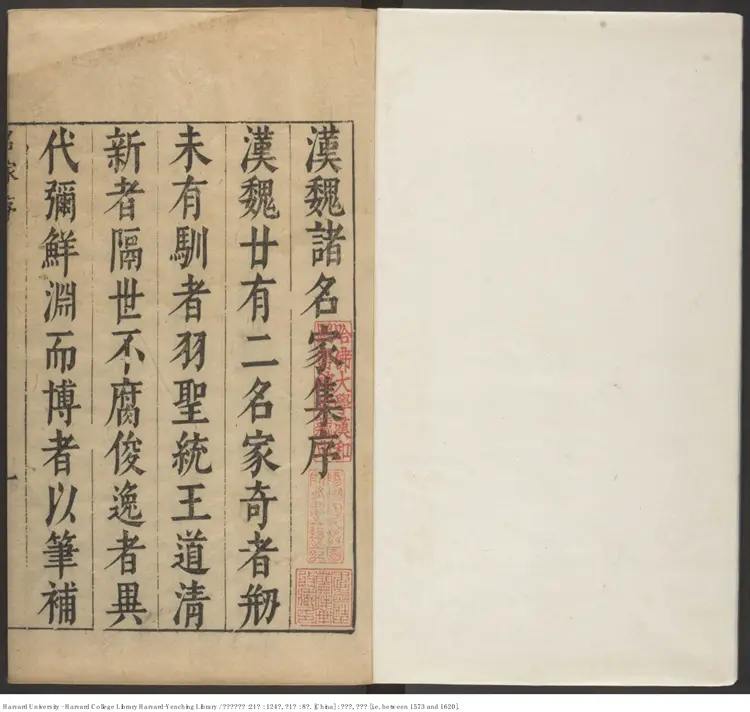 漢魏諸名家集序
漢魏廿有二名家奇者剏
未有馴者羽聖統王道清
新者隔世不腐俊逸者異
代彌鮮淵而博者以筆補
名家序
一
哈佛大學漢和
圖書館珍藏印
Harvard University - Harvard College Library Harvard-Yenching Library / ?????? :21? : 124?, ?1? : 8?. [China] : ???, ??? [i.e. between 1573 and 1620].